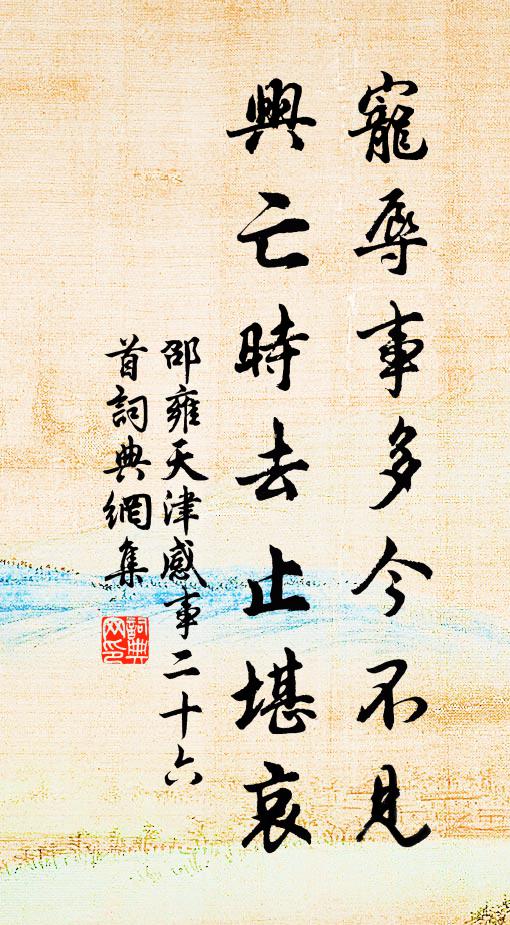 寵辱事多今不見
興亡時去止堪哀
邵雍天津感事二十六
首詞典網集
詞典
网印